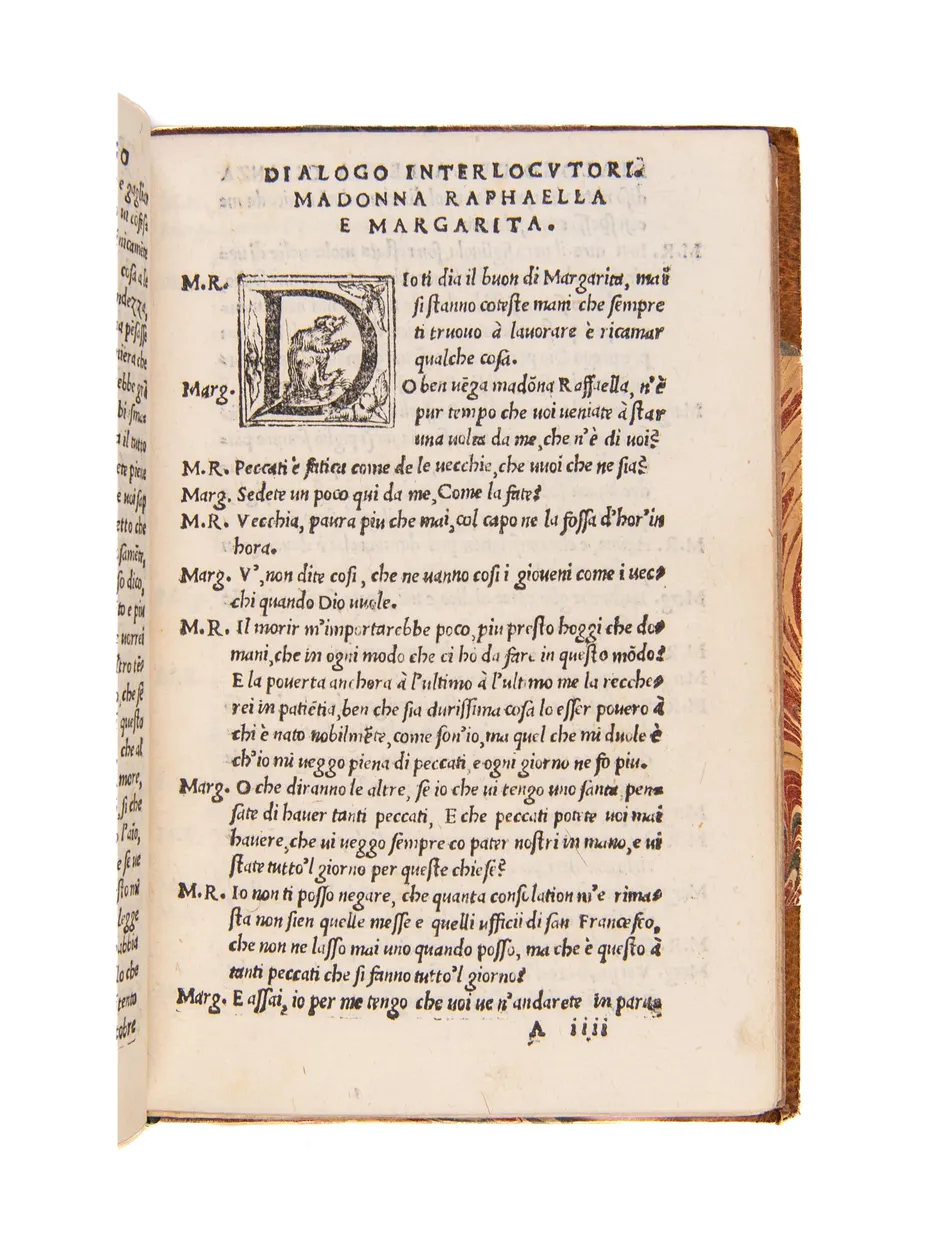 DIALOGO INTERLOCVTORI.
MADONNA RAPHAELLA
E MARGARITA.
M.R. DIo ti dia il buon di Margarita, mai
si stanno coteste mani che sempre
ti truouo à lauorare è ricamar
qualche cosa.
Marg. O ben uẽga madõna Raffaella, n'è
pur tempo che uoi ueniate à star
una uolta da me, che n'è di uoi?
M.R. Peccati è fatica come de le uecchie, che uuoi che ne sia?
Marg. Sedete un poco qui da me, Come la fate?
M.R. Vecchia, paura piu che mai, col capo ne la fossa d'hor'in
hora.
Marg. V', non dite cosi, che ne uanno cosi i gioueni come i uec-
chi quando Dio uuole.
M.R. Il morir m'importarebbe poco, piu presto hoggi che do-
mani, che in ogni modo che ci ho da fare in questo mõdo?
E la pouerta anchora à l'ultimo à l'ultimo me la recche-
rei in patiẽtia, ben che sia durissima cosa lo esser pouero à
chi è nato nobilmẽte, come son'io, ma quel che mi duole è
ch'io mi ueggo piena di peccati, e ogni giorno ne fo piu.
Marg. O che diranno le altre, se io che ui tengo uno santa pen-
sate di hauer tanti peccati, E che peccati potete uoi mai
hauere, che ui ueggo sempre co pater nostri in mano, e ui
state tutto'l giorno per queste chiese?
M.R. Io non ti posso negare, che quanta consolation m'e rima-
sta non sien quelle messe e quelli ufficii di san Francesco,
che non ne lasso mai uno quando posso, ma che è questo à
tanti peccati che si fanno tutto'l giorno?
Marg. E assai, io per me tengo che uoi ue n'andarete in para-
A iiii